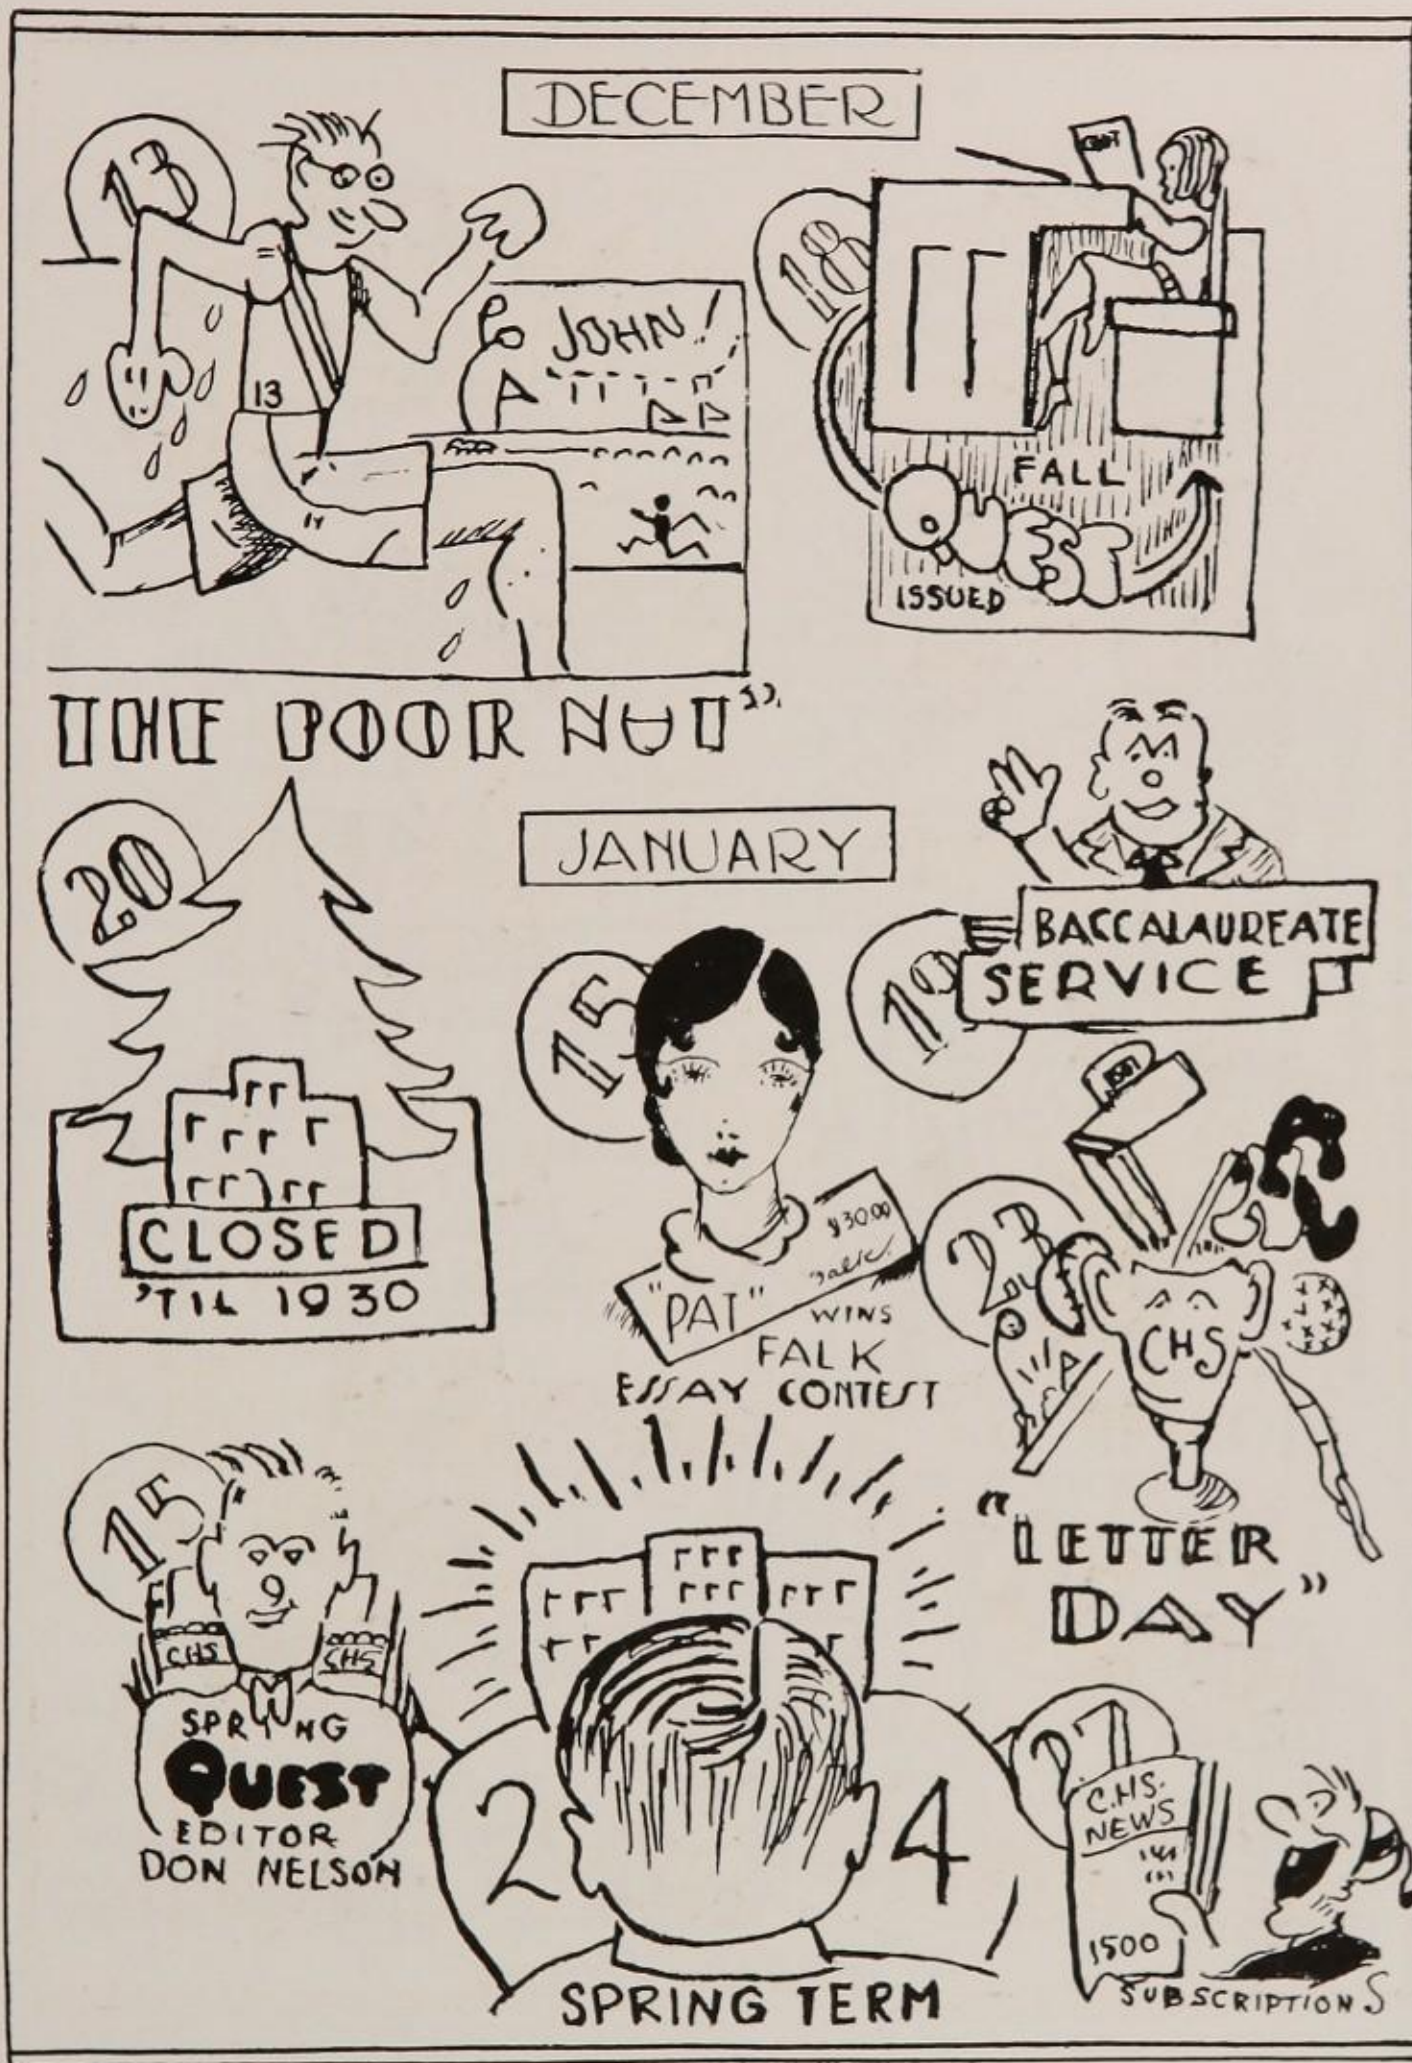 DECEMBER
13
JOHN!
13
18
FALL
QUEST
ISSUED
THE POOR NUT"
20
CLOSED
'TIL 1930
JANUARY
15
$30.00
"PAT"
WINS
FALK
ESSAY CONTEST
19
BACCALAUREATE
SERVICE
23
CHS
"LETTER
DAY"
15
CHS
CHS
SPRING
QUEST
EDITOR
DON NELSON
24
SPRING TERM
27
C.H.S.
NEWS
1500
SUBSCRIPTIONS